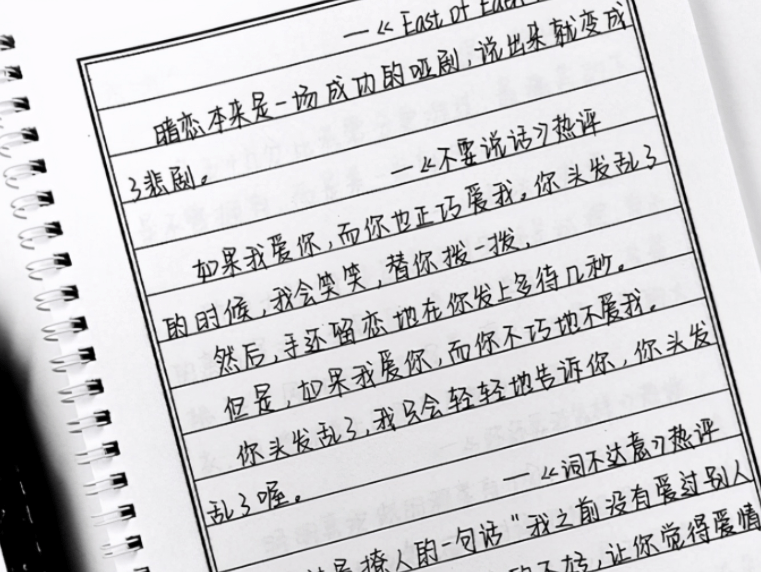 —《East of Eden
暗恋本来是一场成功的哑剧,说出来就变成
了悲剧。 —《不要说话》热评
如果我爱你,而你也正巧爱我。你头发乱了
的时候,我会笑笑,替你拨一拨,
然后,手还留恋地在你发上多待几秒。
但是,如果我爱你,而你不巧地不爱我。
你头发乱了,我只会轻轻地告诉你,你头发
乱了喔。 —《词不达意》热评
是撩人的一句话"我之前没有爱过别人
让你觉得爱情